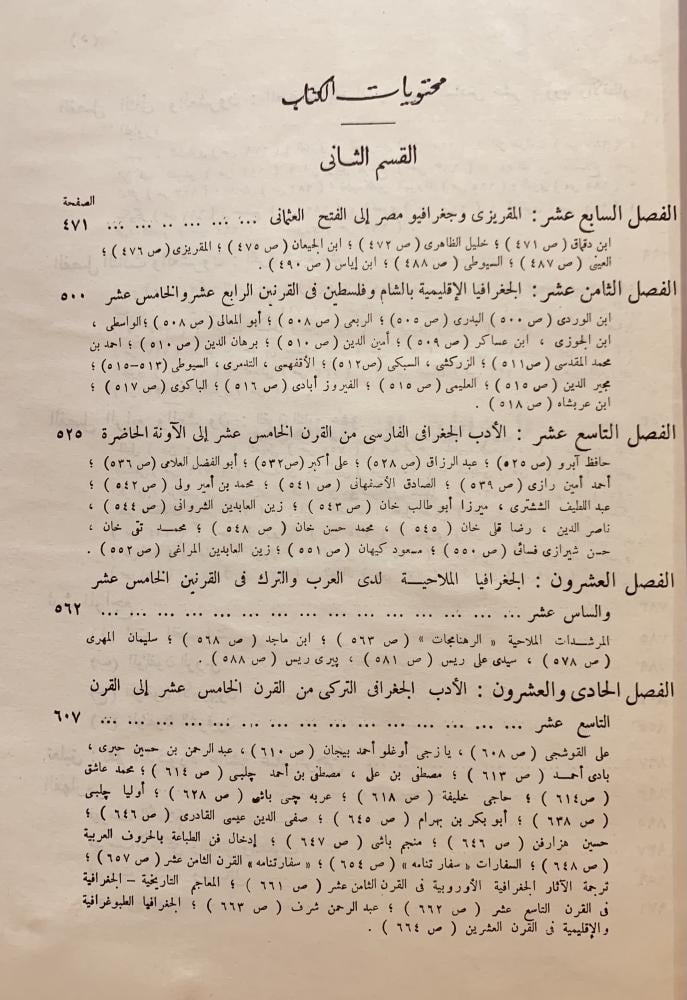 محتويات الكتاب
القسم الثانى
الصفحة
الفصل السابع عشر : المقريزى وجغرافيو مصر إلى الفتح العثمانى ... ... ... .. ... ... ٤٧١
ابن دقماق ( ص ٤٧١ ) ؛ خليل الظاهرى ( ص ٤٧٢ ) ؛ ابن الجيعان ( ص ٤٧٥ ) ؛ المقريزى ( ص ٤٧٦ ) ؛
العينى ( ص ٤٨٧ ) ؛ السيوطى ( ص ٤٨٨ ) ؛ ابن إياس ( ص ٤٩٠ ) .
الفصل الثامن عشر : الجغرافيا الإقليمية بالشام وفلسطين فى القرنين الرابع عشر والخامس عشر ٥٠٠
ابن الوردى ( ص ٥٠٠ ) البدرى ( ص ٥٠٥ ) ؛ الربعى ( ص ٥٠٨ ) ؛ أبو المعالى ( ص ٥٠٨ ) ؛ الواسطى ،
ابن الجوزى ، ابن عساكر ( ص ٥٠٩ ) ؛ أمين الدين ( ص ٥١٠ ) ؛ برهان الدين ( ص ٥١٠ ) ؛ احمد بن
محمد المقدسى ( ص ٥١١ ) ؛ الزركشى ، السبكى ( ص ٥١٢ ) ؛ الأقفهسى ، التدمرى ، السيوطى ( ٥١٣–٥١٥ ) ؛
مجير الدين ( ص ٥١٥ ) ؛ العليمى ( ص ٥١٥ ) ؛ الفيروز أبادى ( ص ٥١٦ ) ؛ الباكوى ( ص ٥١٧ ) ؛
ابن عربشاه ( ص ٥١٨ ) .
الفصل التاسع عشر : الأدب الجغرافى الفارسى من القرن الخامس عشر إلى الآونة الحاضرة ٥٢٥
حافظ آبرو ( ص ٥٢٥ ) ؛ عبد الرزاق ( ص ٥٢٨ ) ؛ على أكبر ( ص ٥٣٢ ) ؛ أبو الفضل العلامى ( ص ٥٣٦ ) ؛
أحمد أمين رازى ( ص ٥٣٩ ) ؛ الصادق الأصفهانى ( ص ٥٤١ ) ؛ محمد بن أمير ولى ( ص ٥٤٢ ) ؛
عبد اللطيف الششترى ، ميرزا أبو طالب خان ( ص ٥٤٣ ) ؛ زين العابدين الشروانى ( ص ٥٤٤ ) ،
ناصر الدين ، رضا قلى خان ( ٥٤٥ ) ، محمد حسن خان ( ص ٥٤٨ ) ؛ محمد تقى خان ،
حسن شيرازى فسائى ( ص ٥٥٠ ) ؛ مسعود كيهان ( ص ٥٥١ ) ؛ زين العابدين المراغى ( ص ٥٥٢ ) .
الفصل العشرون : الجغرافيا الملاحية لدى العرب والترك فى القرنين الخامس عشر
والساس عشر ... ... ... ... ... ... ... ... ... ... ... ... ... ... ... ٥٦٢
المرشدات الملاحية « الرهنامجات » ( ص ٥٦٣ ) ؛ ابن ماجد ( ص ٥٦٨ ) ؛ سليمان المهرى
( ص ٥٧٨ ) ، سيدى على ريس ( ص ٥٨١ ) ، پيرى ريس ( ص ٥٨٨ ) .
الفصل الحادى والعشرون : الأدب الجغرافى التركى من القرن الخامس عشر إلى القرن
التاسع عشر ... ... ... ... ... ... ... ... ... ... ... ... ... ... ... ... ٦٠٧
على القوشجى ( ص ٦٠٨ ) ، يازجى أوغلو أحمد بيجان ( ص ٦١٠ ) ، عبد الرحمن بن حسين حبرى ،
بادى أحمد ( ص ٦١٣ ) ؛ مصطفى بن على ، مصطفى بن أحمد چلبى ( ص ٦١٤ ) ؛ محمد عاشق
( ص ٦١٤ ) ؛ حاجى خليفة ( ص ٦١٨ ) ؛ عربه جى باشى ( ص ٦٢٨ ) ؛ أوليا چلبى
( ص ٦٣٨ ) ؛ أبو بكر بن بهرام ( ص ٦٤٥ ) ؛ صفى الدين عيسى القادرى ( ص ٦٤٦ ) ؛
حسين هزارفن ( ص ٦٤٦ ) ؛ منجم باشى ( ص ٦٤٧ ) ؛ إدخال فن الطباعة بالحروف العربية
( ص ٦٤٨ ) ؛ السفارات « سفار تنامه » ( ص ٦٥٤ ) ؛ « سفارتنامه » القرن الثامن عشر ( ص ٦٥٧ ) ؛
ترجمة الآثار الجغرافية الأوروبية فى القرن الثامن عشر ( ص ٦٦١ ) ؛ المعاجم التاريخية – الجغرافية
فى القرن التاسع عشر ( ص ٦٦٢ ) ؛ عبد الرحمن شرف ( ص ٦٦٣ ) ؛ الجغرافيا الطبوغرافية
والإقليمية فى القرن العشرين ( ص ٦٦٤ ) .